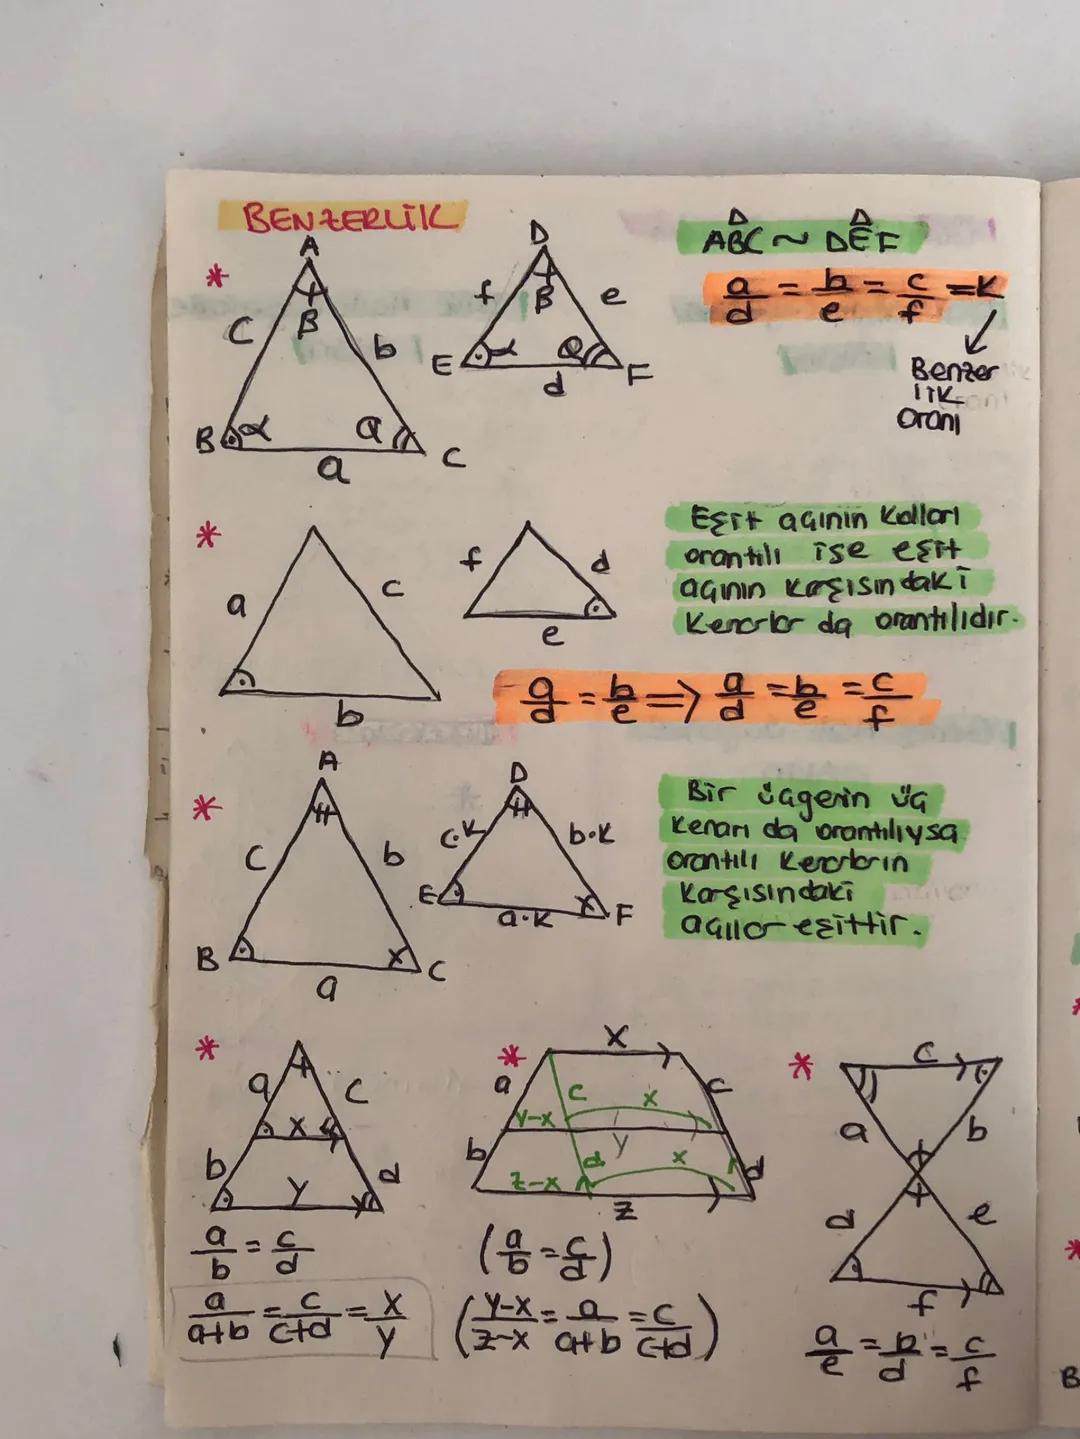 BENZERLİK
*
A
B
c
b
B
α
Q
C
a
D
f
B
e
E
α
Q
F
d
ABC ~ DEF
a/d = b/e = c/f = K
Benzer
lik
oranı
*
a
c
b
f
d
e
Eşit açının kolları
orantılı ise eşit
açının karşısındaki
kenarlar da orantılıdır.
a/d = b/e => a/d = b/e = c/f
*
A
c
b
B
x
C
a
D
c.K
b.K
E
x
F
a.K
Bir üçgenin üç
kenarı da orantılıysa
orantılı kenarların
karşısındaki
açılar eşittir.
*
a
c
x
b
d
y
a/b = c/d
a/a+b = c/c+d = x/y
*
x
a
c
c
x
y-x
y
b
d
x
d
z-x
z
(a/b = c/d)
(y-x/z-x = a/a+b = c/c+d)
*
c
a
b
d
e
f
a/e = b/d = c/f
B